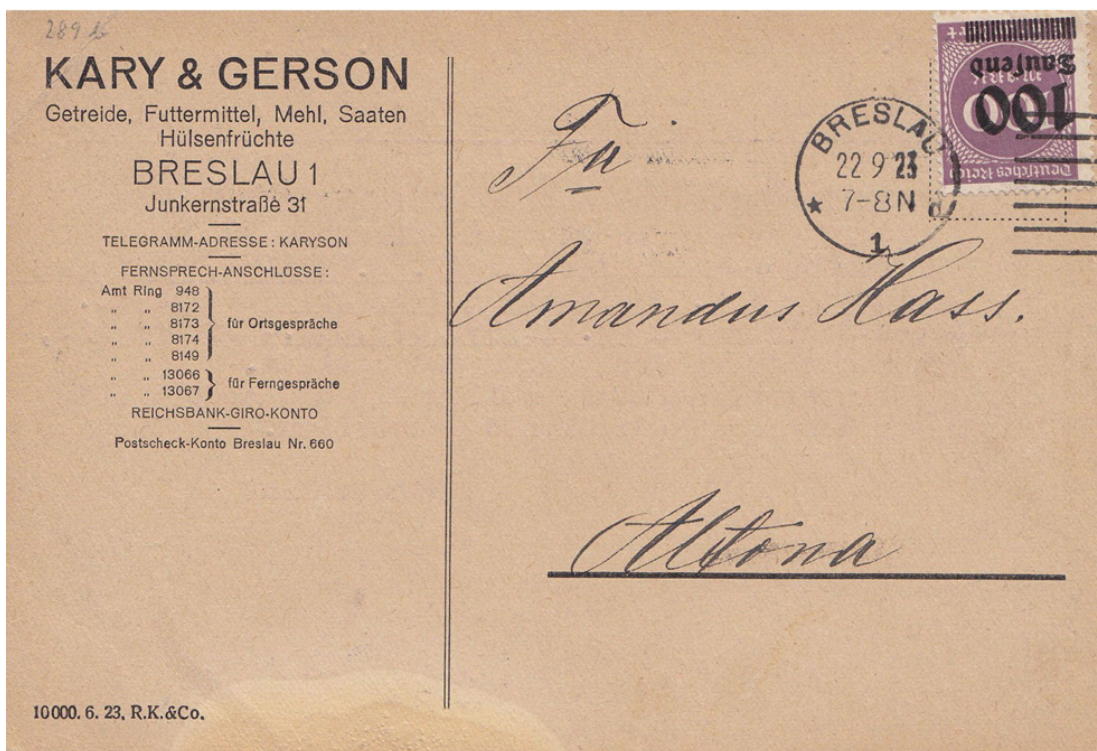 289 b
KARY & GERSON
Getreide, Futtermittel, Mehl, Saaten
Hülsenfrüchte
BRESLAU 1
Junkernstraße 31
TELEGRAMM-ADRESSE: KARYSON
FERNSPRECH-ANSCHLÜSSE:
Amt Ring 948
„ „ 8172
„ „ 8173
„ „ 8174
„ „ 8149
für Ortsgespräche
„ „ 13066
„ „ 13067
für Ferngespräche
REICHSBANK-GIRO-KONTO
Postscheck-Konto Breslau Nr. 660
10000. 6. 23. R.K.&Co.
100
Tausend
Deutsches Reich
BRESLAU
22 9 23
7-8 N
* 1
Fa
Amandus Hass.
Altona